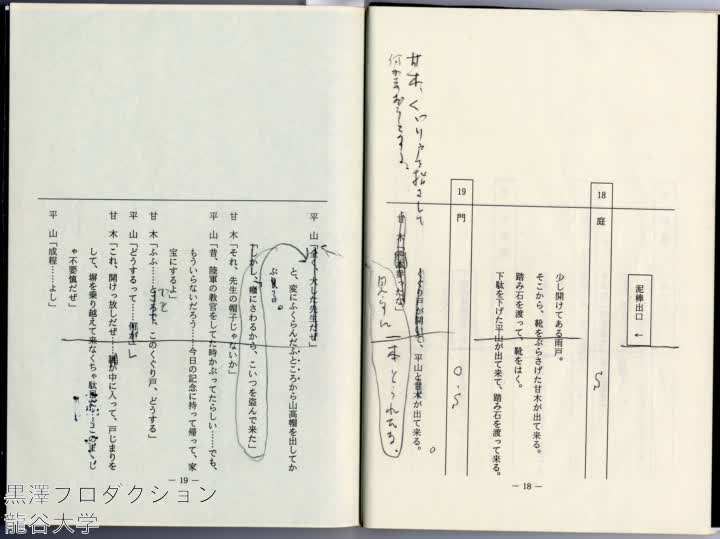 泥棒出口 ←
18 庭
少し開けてある雨戸。
そこから、靴をぶらさげた甘木が出て来る。
踏み石を渡って、靴をはく。
下駄を下げた平山が出て来て、踏み石を渡って来る。
19 門
くぐり戸が開いて、平山と甘木が出て来る。
甘木、くゞり戸を指さして
何か
甘　木「
一本とられたな」
一本とられたな。
— 18 —
平　山「全く、大した先生だぜ」
と、変にふくらんだふところから山高帽を出してか
ぶる。
「しかし、癪にさわるから、こいつを盗んで来た」
甘　木「それ、先生の帽子じゃないか」
平　山「昔、陸軍の教官をしてた時かぶってたらしい……でも、
もういらないだろう……今日の記念に持って帰って、家
宝にするよ」
甘　木「ふふ……ところで、このくぐり戸、どうする」
平　山「どうするって……何が」
甘　木「これ、開けっ放しだぜ……誰か中に入って、戸じまりを
して、塀を乗り越えて来なくちゃ駄目だ……このまゝじ
ゃ不要慎だぜ」
平　山「成程……よし」
— 19 —
黒澤プロダクション
龍谷大学